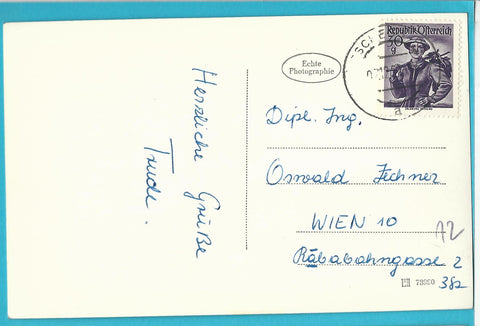 Herzliche Grüße
Trude.
Echte
Photographie
Republik Österreich
30
g
Dipl. Ing.
Oswald Zechner
WIEN 10
Rábabahngasse 2
A2
382